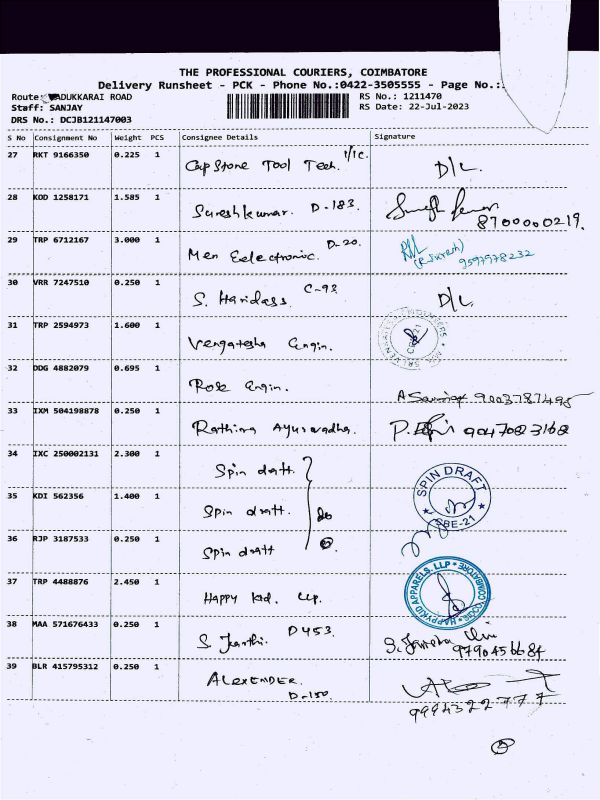 THE PROFESSIONAL COURIERS, COIMBATORE
Delivery Runsheet - PCK - Phone No.:0422-3505555 - Page No.:
Route: MADUKKARAI ROAD RS No.: 1211470
Staff: SANJAY RS Date: 22-Jul-2023
DRS No.: DCJB121147003
S No Consignment No Weight PCS Consignee Details Signature
27 RKT 9166350 0.225 1 Cap Stone Tool Tech. D/L.
28 KOD 1258171 1.585 1 Sureshkumar. D-183. 8700000219.
29 TRP 6712167 3.000 1 Men Eelectronic. D-20. (R.Suresh) 9597978232
30 VRR 7247510 0.250 1 S. Haridass. C-98 D/L.
31 TRP 2594973 1.600 1 Vengatesha Engin.
32 DDG 4882079 0.695 1 Rose Engin. 9003787495
33 IXM 504198878 0.250 1 Rathina Ayurvadha. 9047083168
34 IXC 250002131 2.300 1 Spin daft. SPIN DRAFT
35 KDI 562356 1.400 1 Spin draft. SBE-21
36 RJP 3187533 0.250 1 Spin datt
37 TRP 4488876 2.450 1 Happy Kid. LLP. HAPPYKID APPARELS. LLP
38 MAA 571676433 0.250 1 S. Janthi. D453. 9790456684
39 BLR 415795312 0.250 1 ALEXENDER. D-150. 9994322777